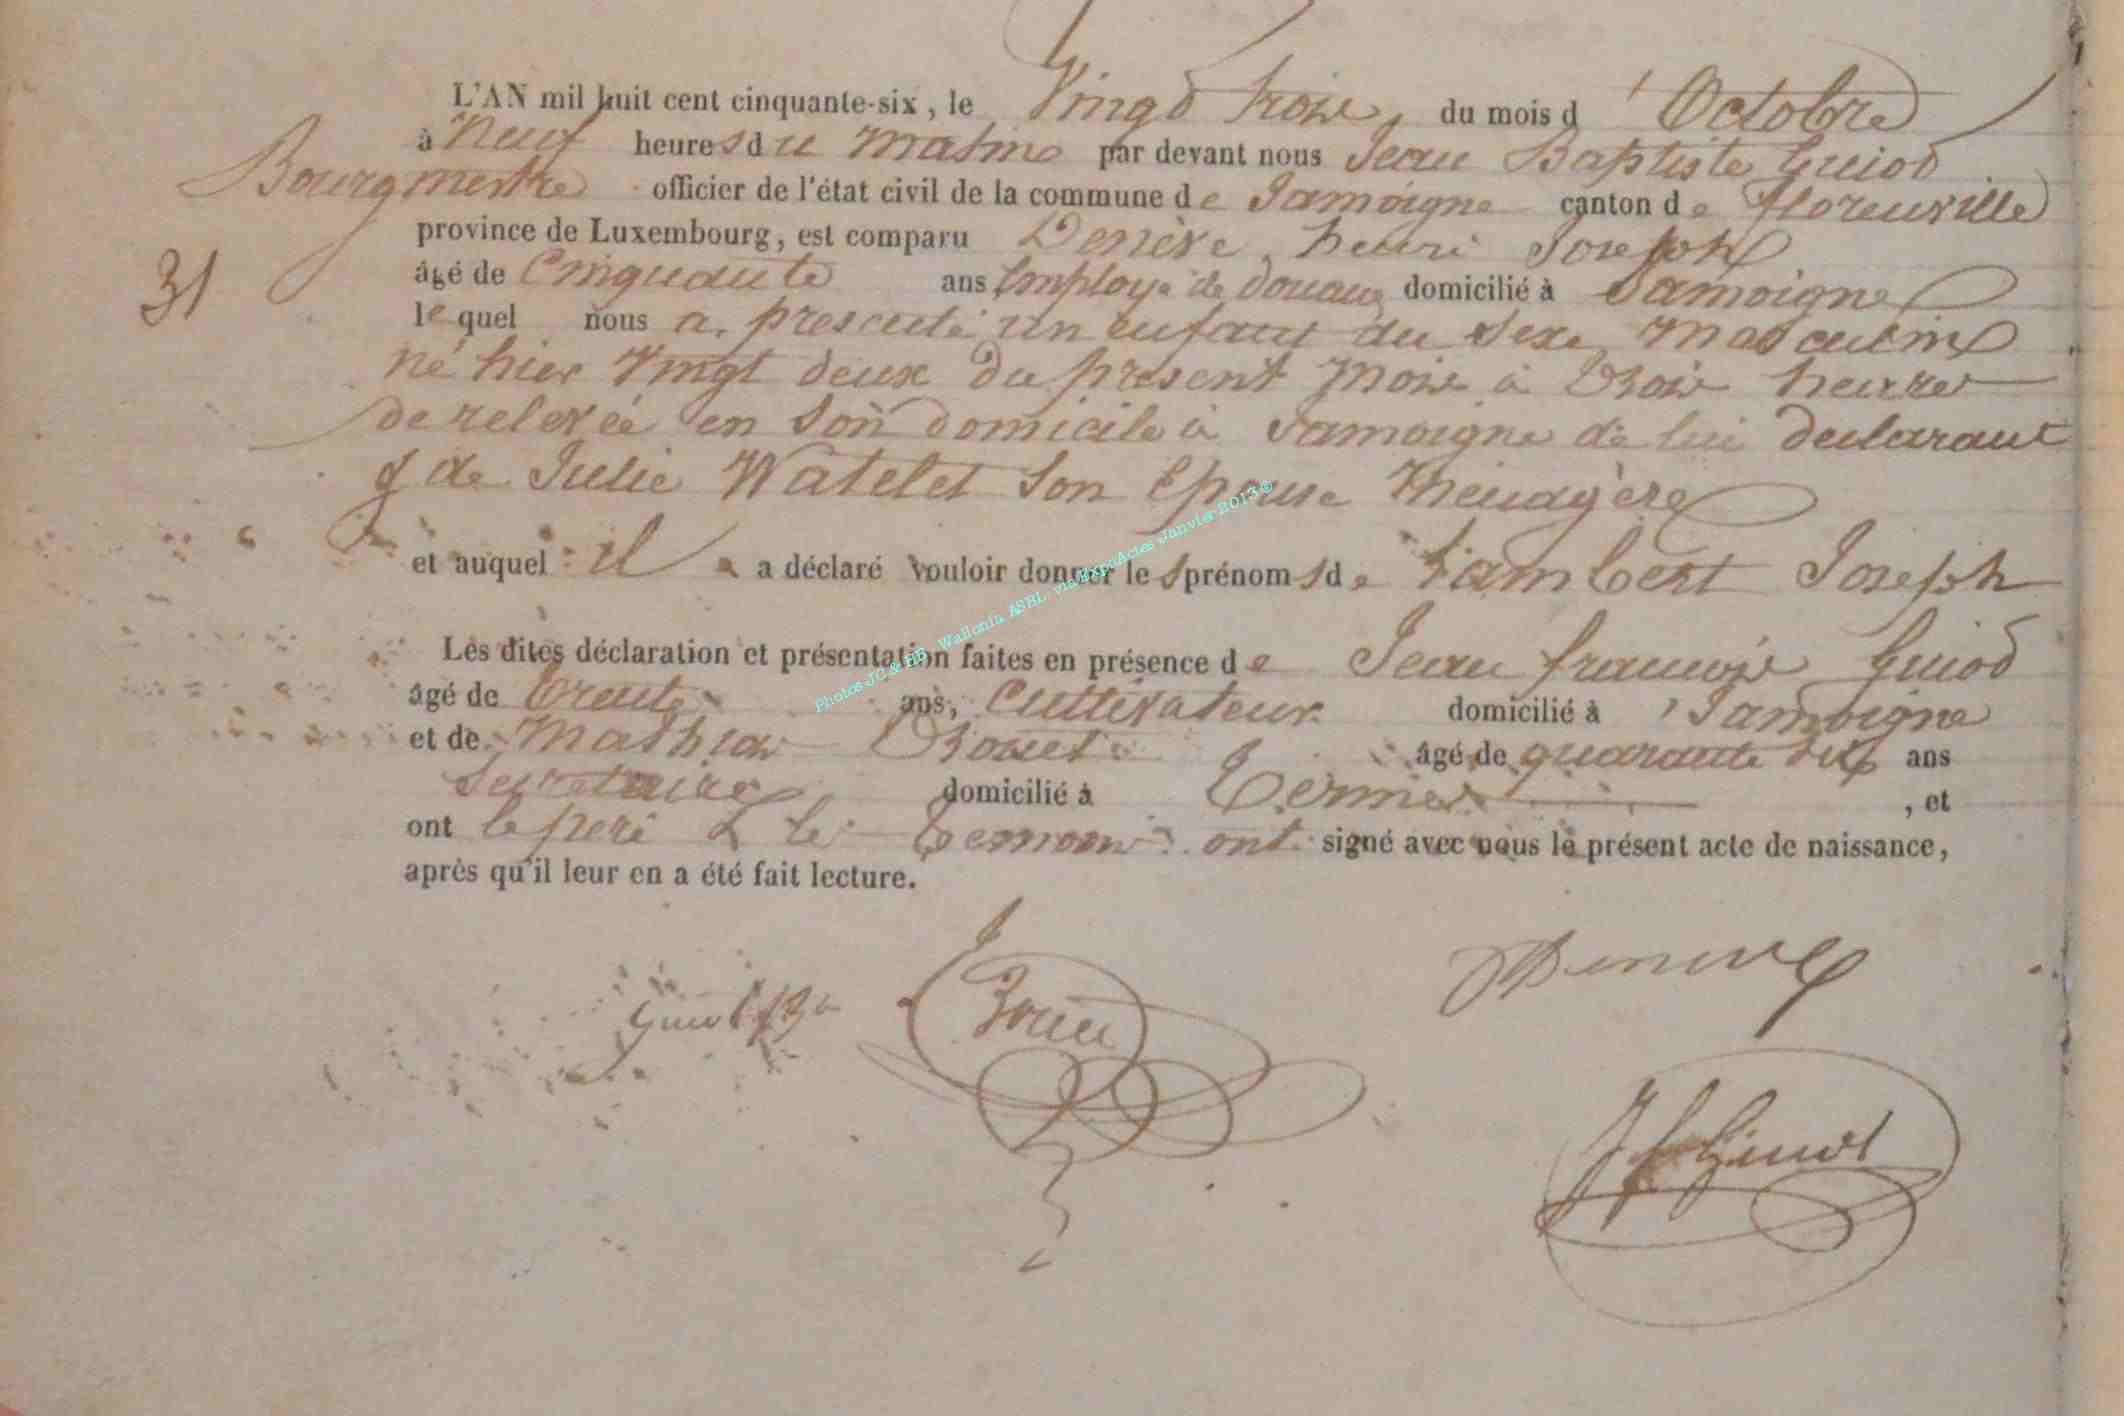 L'AN mil huit cent cinquante-six, le Vingt trois du mois d'Octobre
à Neuf heures du Matin par devant nous Jean Baptiste Guiot
Bourgmestre officier de l'état civil de la commune de Jamoigne canton de Florenville
province de Luxembourg, est comparu Denève henri Joseph
31
âgé de Cinquante ans Employé de douane domicilié à Jamoigne
lequel nous a présenté un enfant du Sexe Masculin
né hier Vingt deux du présent Mois à trois heures
de relevée en Son domicile à Jamoigne de lui declarant
& de Julie Watelet Son Epouse Menagère
et auquel il a déclaré vouloir donner les prénoms de Lambert Joseph
Les dites déclaration et présentation faites en présence de Jean françois Guiot
âgé de trente ans, Cultivateur domicilié à Jamoigne
et de Mathias âgé de quarante ans
Secretaire domicilié à Termes, et
ont le père & les temoins ont signé avec nous le présent acte de naissance,
après qu'il leur en a été fait lecture.
Denève
Guiot JBte
J f Guiot
Photos JC & BB Wallonia ASBL via ExpoActes Janvier 2013®